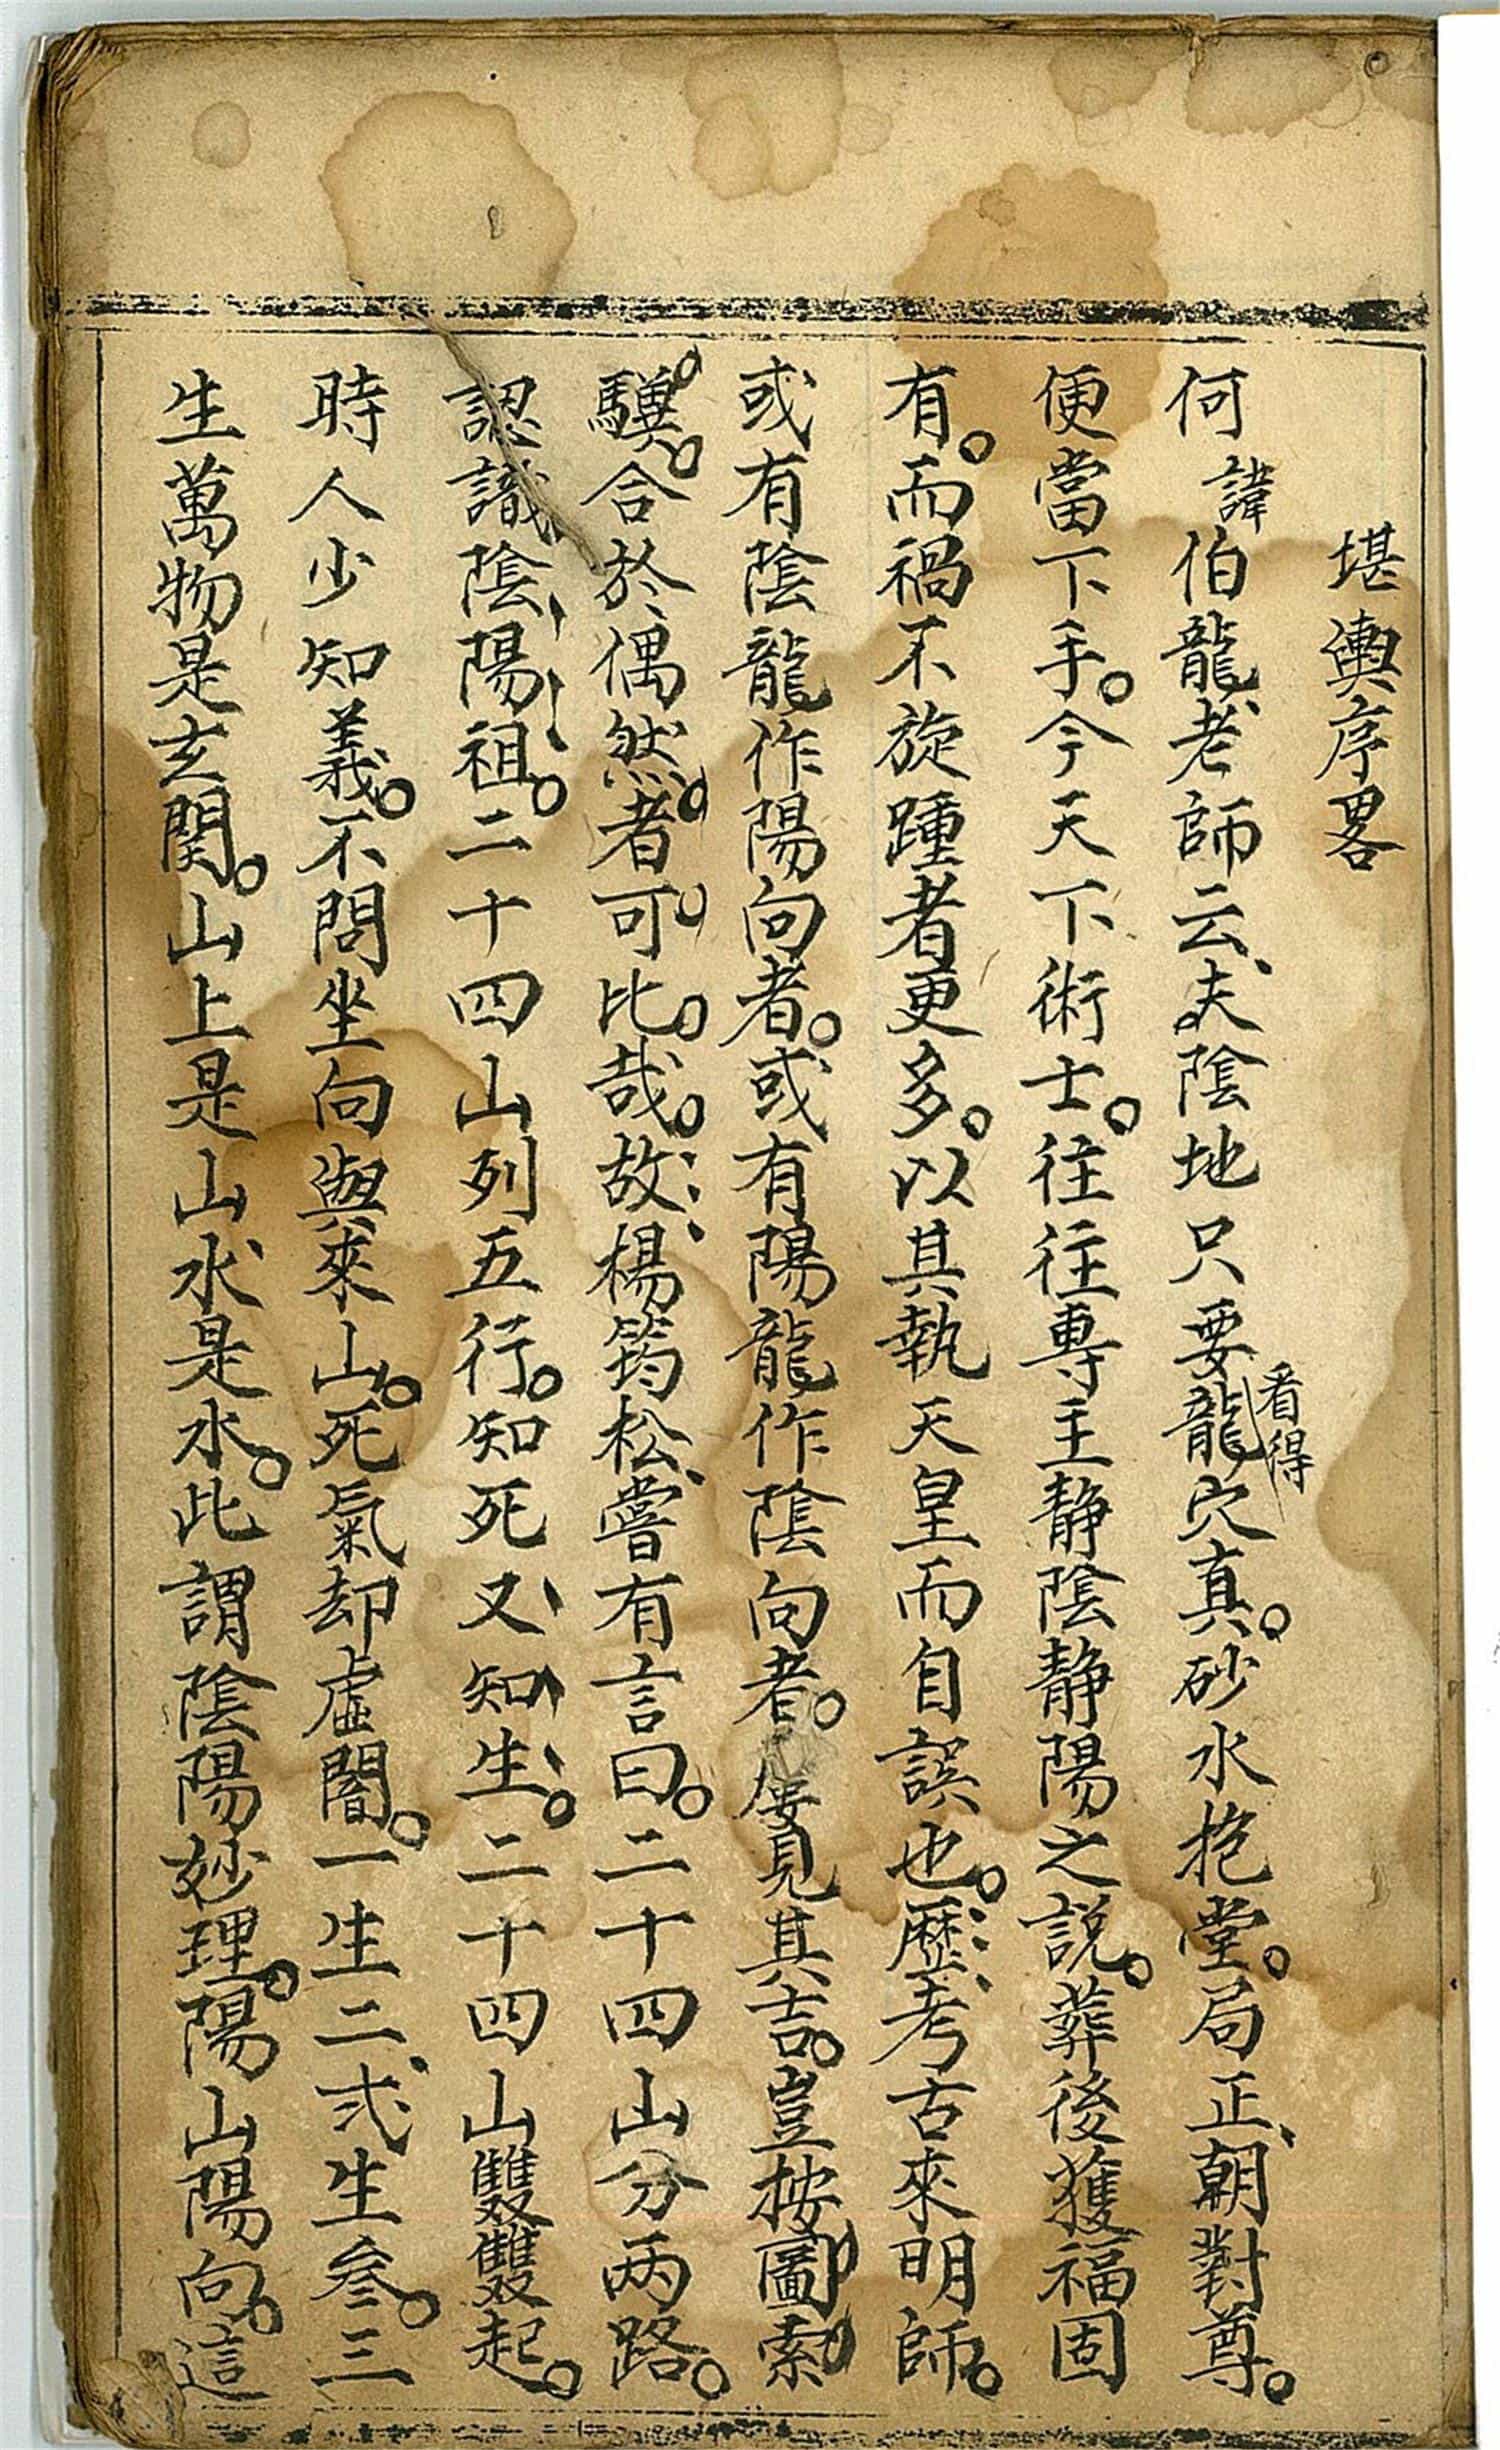 堪輿序畧
何諱伯龍老師云夫陰地只要看得龍穴真砂水抱堂局正朝對尊
便當下手今天下術士往往專主靜陰靜陽之說葬後獲福固
有而禍不旋踵者更多以其執天皇而自誤也歷考古來明師
或有陰龍作陽向者或有陽龍作陰向者屡見其吉豈按圖索
驥合於偶然者可比哉故楊筠松嘗有言曰二十四山分两路
認識陰陽祖二十四山列五行知死又知生二十四山雙雙起
時人少知義不問坐向與來山死氣却虛闇一生二弍生叁三
生萬物是玄関山上是山水是水此謂陰陽妙理陽山陽向這